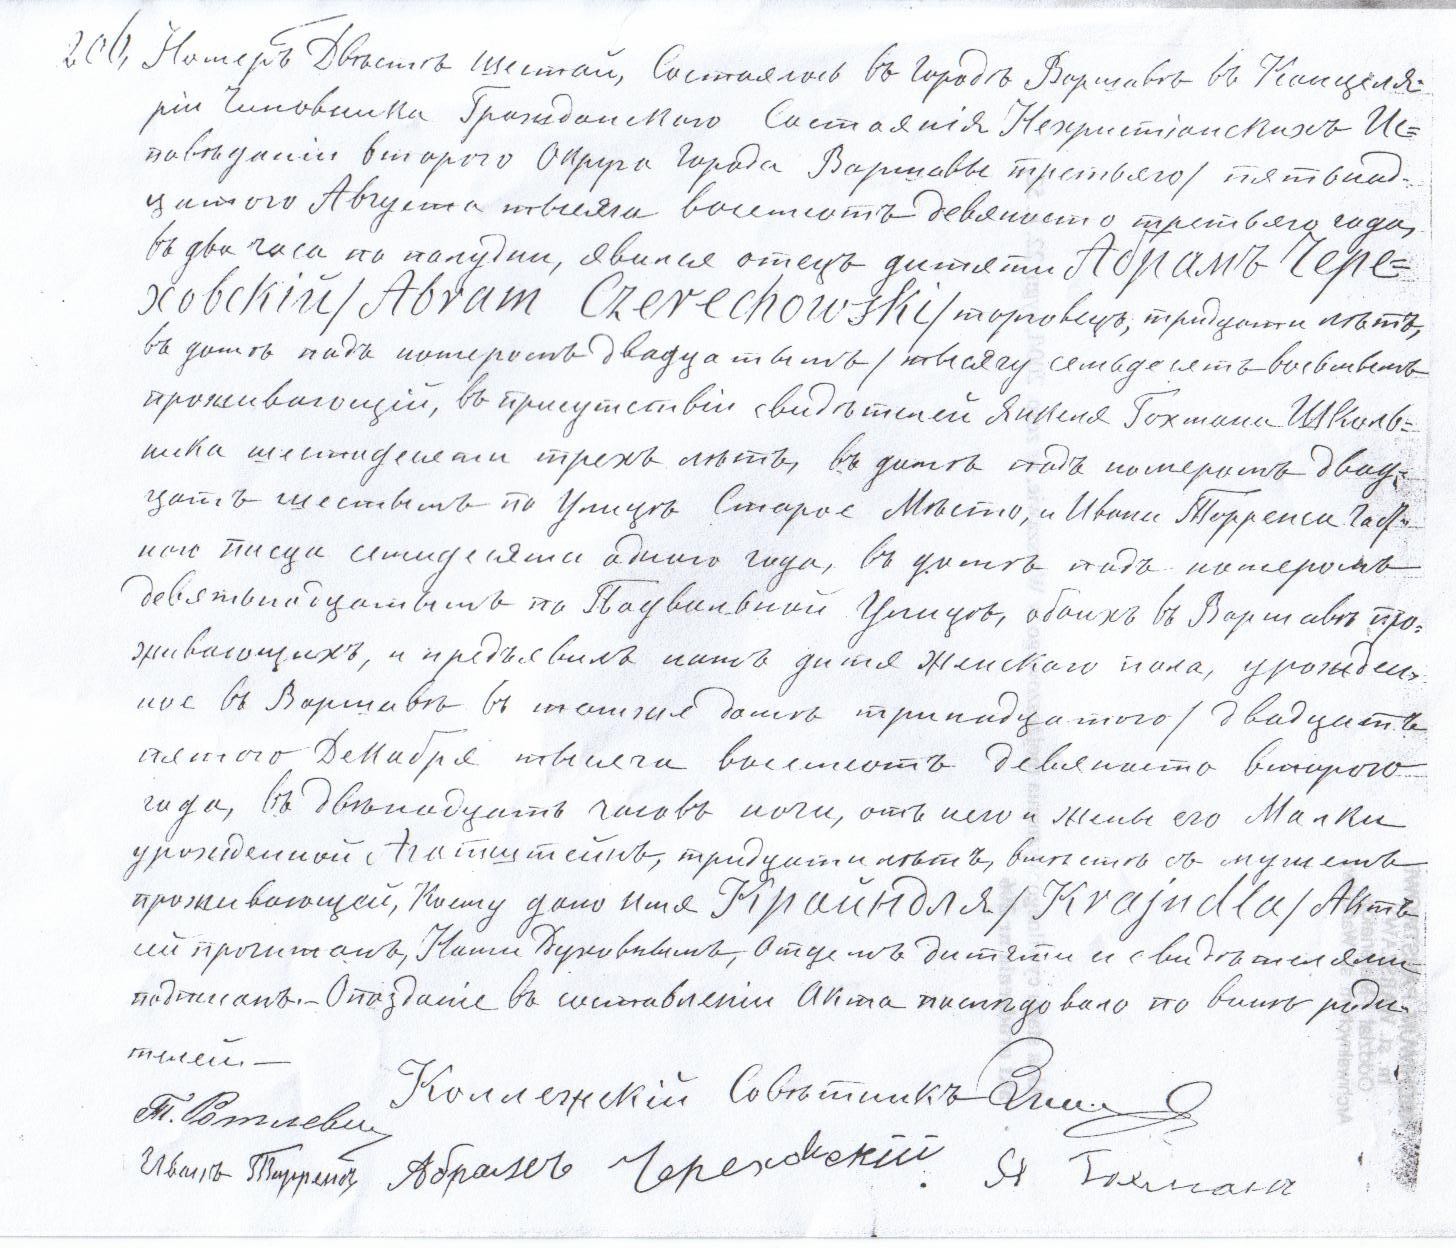 206, Номеръ Двѣстѣ шестой, Состоялось въ Городѣ Варшавѣ въ Канцеля-
ріи Чиновника Гражданскаго Состоянія Нехристіанскихъ Ис=
повѣданій втораго Округа Города Варшавы третьяго/ пятьнад-
цатого Августа тысяча восемьсотъ девяносто третьяго года,
въ два часа по полудни, явился отецъ дитяти Абрамъ Чере=
ховскій/ Abram Czerechowski/ торговецъ, тридцати лѣтъ,
въ домѣ подъ номеромъ двадцатымъ/ тысячу семьдесятъ восьмымъ
проживающій, въ присутствіи свидѣтелей Янкеля Гохмана Школь=
ника шестидесяти трехъ лѣтъ, въ домѣ подъ номеромъ двад-
цать шестымъ по Улицѣ Старое Мѣсто, и Ивана Торренса част-
наго писца семидесяти одного года, въ домѣ подъ номеромъ
девятьнадцатымъ по Подвальной Улицѣ, обоихъ въ Варшавѣ про-
живающихъ, и предъявилъ намъ дитя женскаго пола, урожден-
ное въ Варшавѣ въ томъже домѣ тринадцатого/ двадцать
пятого Декабря тысяча восемьсотъ девяносто второго
года, въ двѣнадцать часовъ ночи, отъ него и жены его Малки
урожденной Агатштейнъ, тридцати лѣтъ, вмѣстѣ съ мужемъ
проживающей, Коему дано имя Крайндля/ Krajndla/ Актъ
сей прочитанъ, Нами Духовнымъ, Отцемъ дитяти и свидѣтелями
подписанъ.- Опозданіе въ составленіи Акта послѣдовало по винѣ роди-
телей.—
Коллежскій Совѣтникъ
Иванъ Торренсъ Абрамъ Череховскій Я Гохманъ